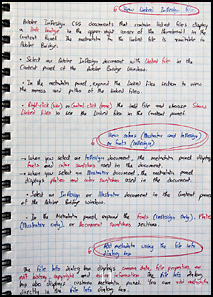 View linked InDesign files
Adobe InDesign CS5 documents that contain linked files display
a link badge in the upper-right corner of the thumbnail in the
Content panel. The metadata in the linked file is available in
Adobe Bridge.
• Select an InDesign document with linked file in the
Content panel of the Adobe Bridge window.
• In the metadata panel, expand the Linked Files section to view
the names and paths of the linked files.
• Right-click (Win) or Control click (Mac) the InDD file and choose Show
Linked Files to see the linked files in the Content panel.
View colors (Illustrator and InDesign)
or fonts (InDesign)
→ When you select an InDesign document, the metadata panel displays
fonts and color swatches used in the document.
→ When you select an Illustrator document, the metadata panel
displays plates and color swatches used in the document.
• Select an InDesign or Illustrator document in the Content panel
of the Adobe Bridge window.
• In the Metadata panel, expand the Fonts (InDesign only), Plates
(Illustrator only), or Document Swatches sections.
Add metadata using the File Info
dialog box
The File Info dialog box displays camera data, file properties, an
edit history, copyright and author information. The File Info dialog
box also displays custom metadata panels. You can add metadata
directly in the File Info dialog box.